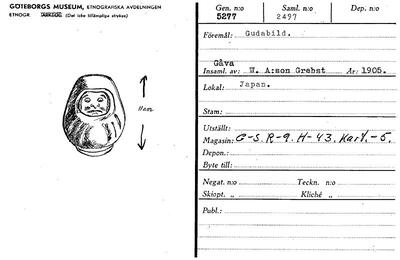 GÖTEBORGS MUSEUM, ETNOGRAFISKA AVDELNINGEN
ETNOGR. ARKEOL. (Det icke tillämpliga strykes)
Gen. n:o Saml. n:o Dep. n:o
5277 2497
Föremål: Gudabild.
Gåva
Insaml. av: W. A:son Grebst År: 1905.
Lokal: Japan.
Stam:
Utställt:
Magasin: C-S. R-9. H-43. Kart.-5.
Depon.:
Byte till:
Negat. n:o Teckn. n:o
Skiopt. „ Kliché „
Publ.: